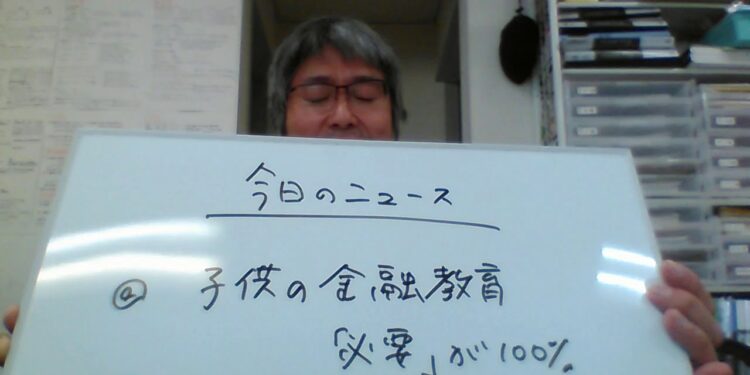 今日のニュース
@ 子供の金融教育
「必要」が100%